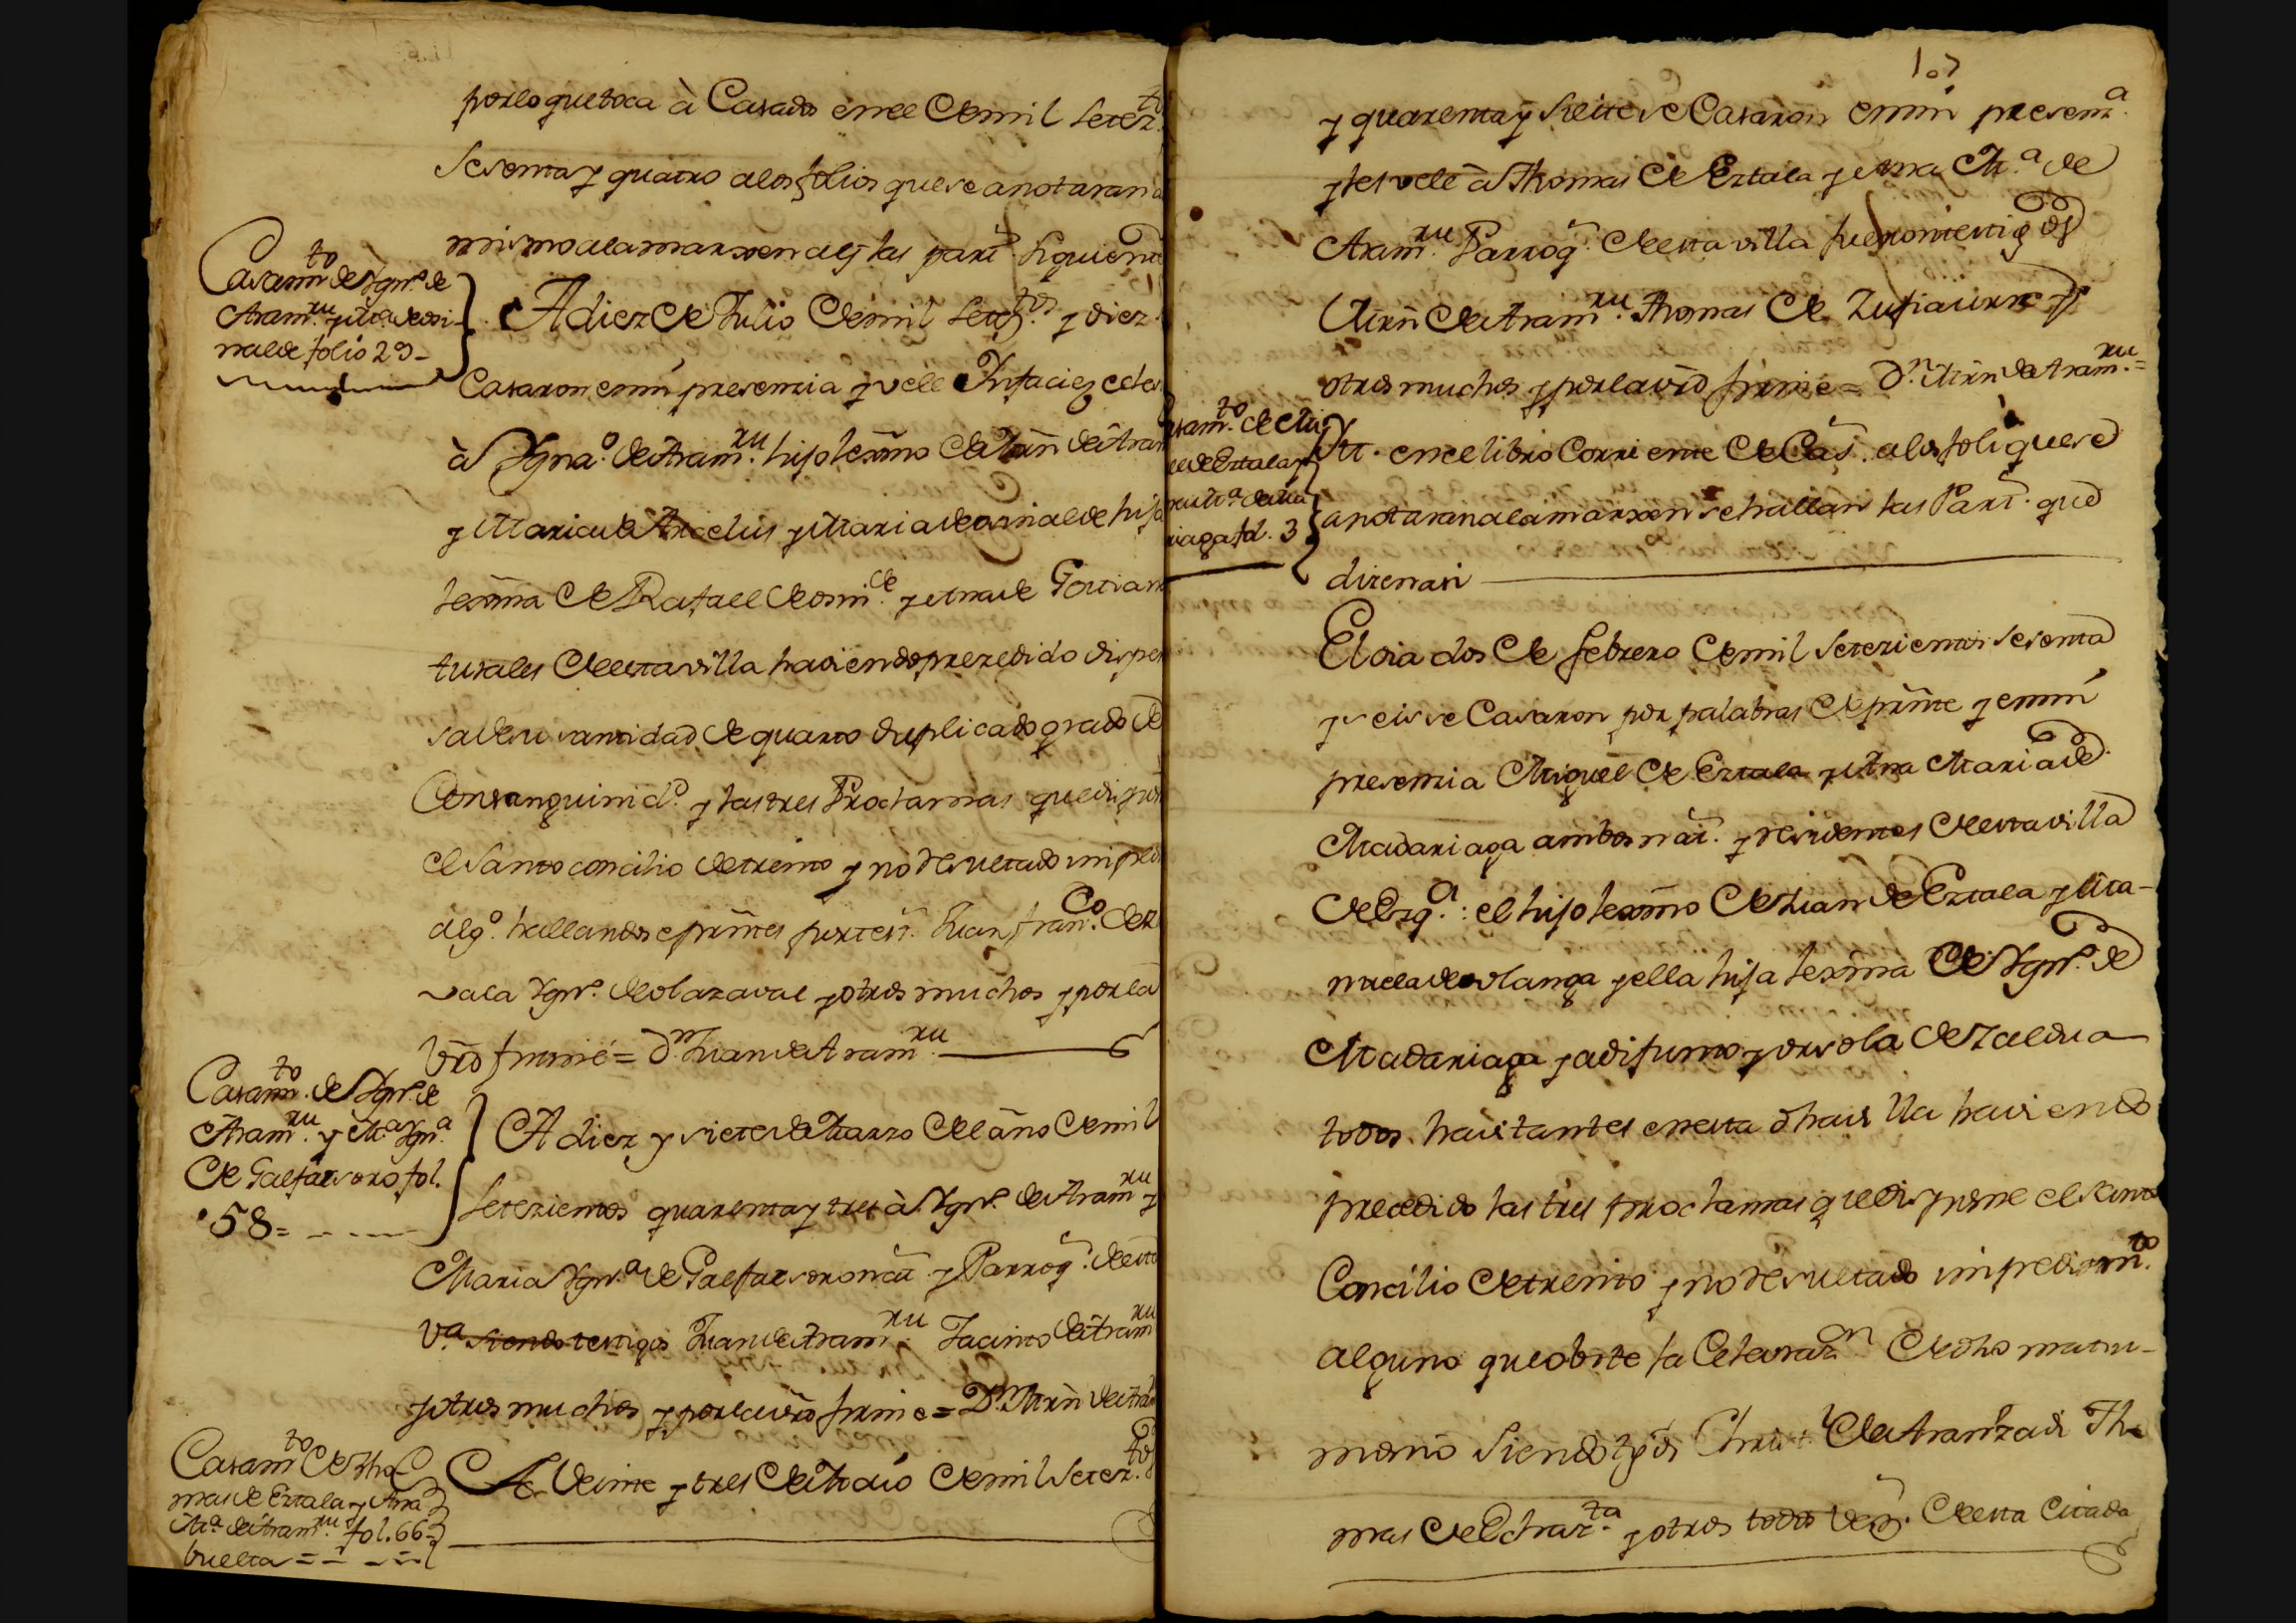 por lo que toca à Casados en el de mil setez.tos
sesenta y quatro a los folios que se anotaran a
mismo a la marxen
Casam.to de Ygn.o de
Aram.ru y M.a de osi-
nalde folio 29-
A diez de Julio de mil setez.tos y diez
Casaron en mi presencia y vele Infacie
à Ygna.o de Aram.ru hijo lexmo de Mrn de Aram
y Maria de y Maria de osinalde hija
lexma de Rafael de osin.de y de
turales de esta villa haviendo prezedido dispen
sa de su santidad de quarto duplicado grado de
Consanguinid.d y las tres Proclamas que dispon
el santo concilio de trento y no resultado imped
alg.o hallandose prntes por test. Juan fran.co de
vala Ygn.o de olazaval y otros muchos y por la
vrd firmé = D.n Juan de Aram.ru
Casam.to de Ygn.o de
Aram.ru y M.a Ygn.a
de Galfarsoro fol.
58=
A diez y siete de Marzo del año de mil
setezientos quarenta y tres à Ygn.o de Aram.ru y
Maria Ygn.a de Galfarsoro nat. y Parroq. de esta
V.a siendo testigos Juan de Aram.ru Jacinto de Aram.ru
y otros muchos y por la vrd firmé = D.n Mrn de Aram
Casam.to de Tho
mas de Eztala y Ana
M.a de Aram.ru fol. 66
buelta = =
A Veinte y tres de Maio de mil setez.tos
107
y quarenta y siete se Casaron en mi presenz.a
y les vele à Thomas de Eztala y Ana M.a de
Aram.ru Parroq. de esta villa fueron testigos
Mrn de Aram.ru Thomas de Zufiaurre y
otros muchos y por la vrd firmé = D.n Mrn de Aram.ru =
Casam.to de Mig
el de Eztala y
M.a de Mada
riaga fol. 3
Ytt. en el libro Corriente de Cas. a los foli que se
anotaran a la marxen se hallan las Part. que
dizen asi
El dia dos de febrero de mil setezientos sesenta
y seis se Casaron por palabras de prnte y en mi
presenzia Miguel de Eztala y Ana Maria de
Madariaga ambos nat. y residentes de esta villa
de Ezq.a: el hijo lexmo de Juan de Eztala y Ma-
nuela de olanga y ella hija lexma de Ygn.o de
Madariaga ya difunto y orsola de Zaldua
todos havitantes en esta dha villa haviendo
precedido las tres proclamas que dispone el santo
Concilio de trento y no resultado impedim.to
alguno que obste la Celevraz.on de dho matri-
monio siendo tgos Christ.l de Aranzadi Tho
mas de Echaz.ta y otros todos vez. de esta Citada